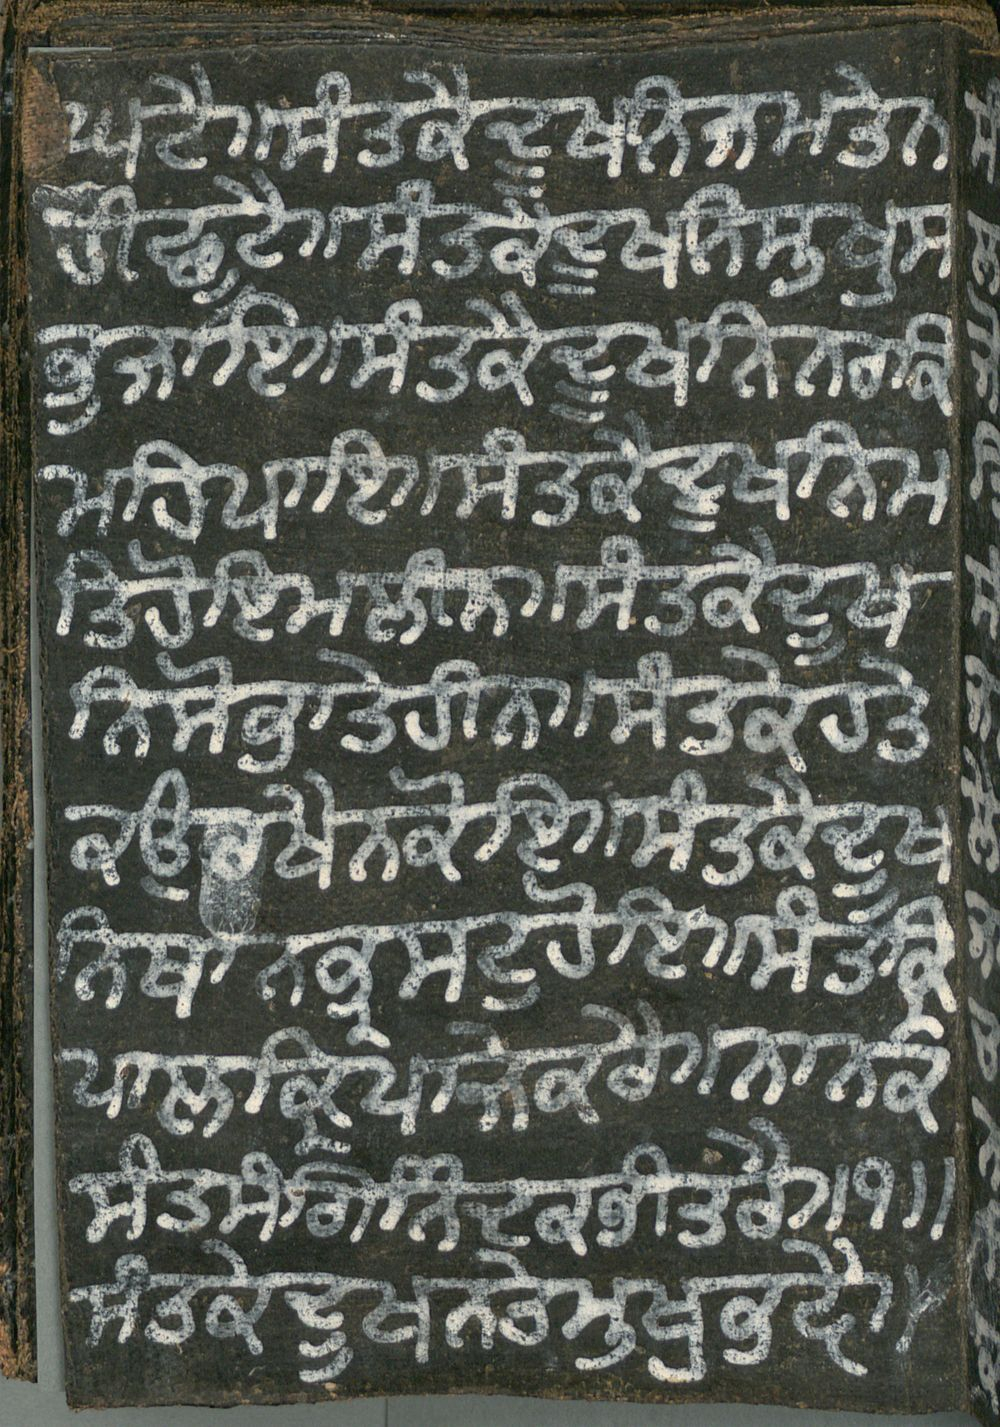 ਘਟੈ॥ਸੰਤਕੈਦੂਖਨਿਜਮਤੇਨ
ਹੀਛੁਟੈ॥ਸੰਤਕੈਦੂਖਨਿਸੁਖੁਸ
ਭੁਜਾਇ॥ਸੰਤਕੈਦੂਖਨਿਨਰਕਿ
ਮਹਿਪਾਇ॥ਸੰਤਕੇਦੂਖਨਿਮ
ਤਿਹੋਇਮਲੀਨ॥ਸੰਤਕੈਦੂਖ
ਨਿਸੋਭਾਤੇਹੀਨ॥ਸੰਤਕੇਹਤੇ
ਕਉਰਖੈਨਕੋਇ॥ਸੰਤਕੈਦੂਖ
ਨਿਥਾਨਭ੍ਰਸਟੁਹੋਇ॥ਸੰਤਕ੍ਰਿ
ਪਾਲਕ੍ਰਿਪਾਜੇਕਰੈ॥ਨਾਨਕ
ਸੰਤਸੰਗਿਨਿੰਦਕਭੀਤਰੈ॥੧॥
ਸੰਤਕੇਦੂਖਨਤੇਮੁਖੁਭੁਵੈ॥